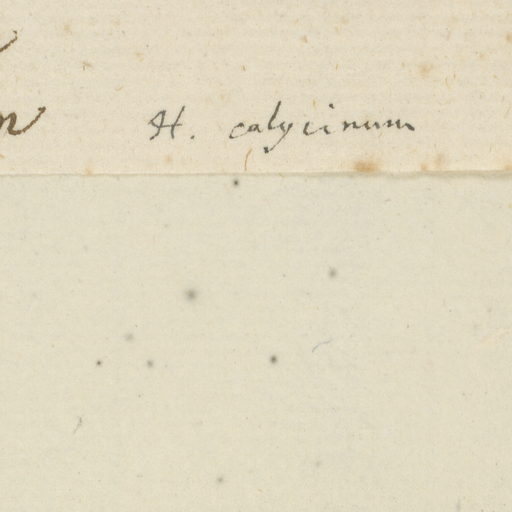 H. calycinum